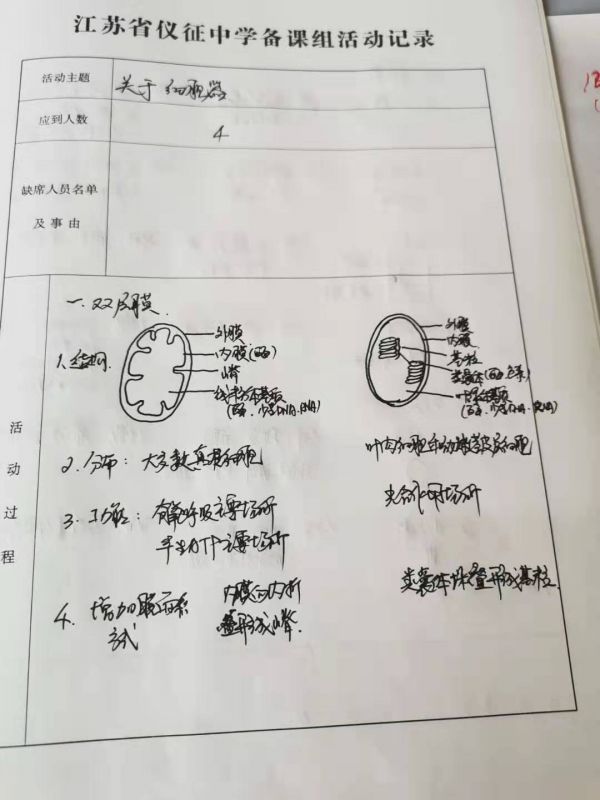 江苏省仪征中学备课组活动记录
活动主题 关于细胞器
应到人数 4
缺席人员名单
及事由
活动过程
一.双层膜
1.结构.
外膜
内膜(酶)
嵴
线粒体基质
(酶、少量DNA、RNA)
外膜
内膜
基粒
类囊体(酶、色素)
叶绿体基质
(酶、少量DNA、RNA)
2.分布：大多数真核细胞
叶肉细胞和幼嫩茎皮层细胞
3.功能：有氧呼吸主要场所
产生ATP主要场所
光合作用场所
4.增加膜面积
方式
内膜向内折
叠形成嵴.
类囊体堆叠形成基粒.